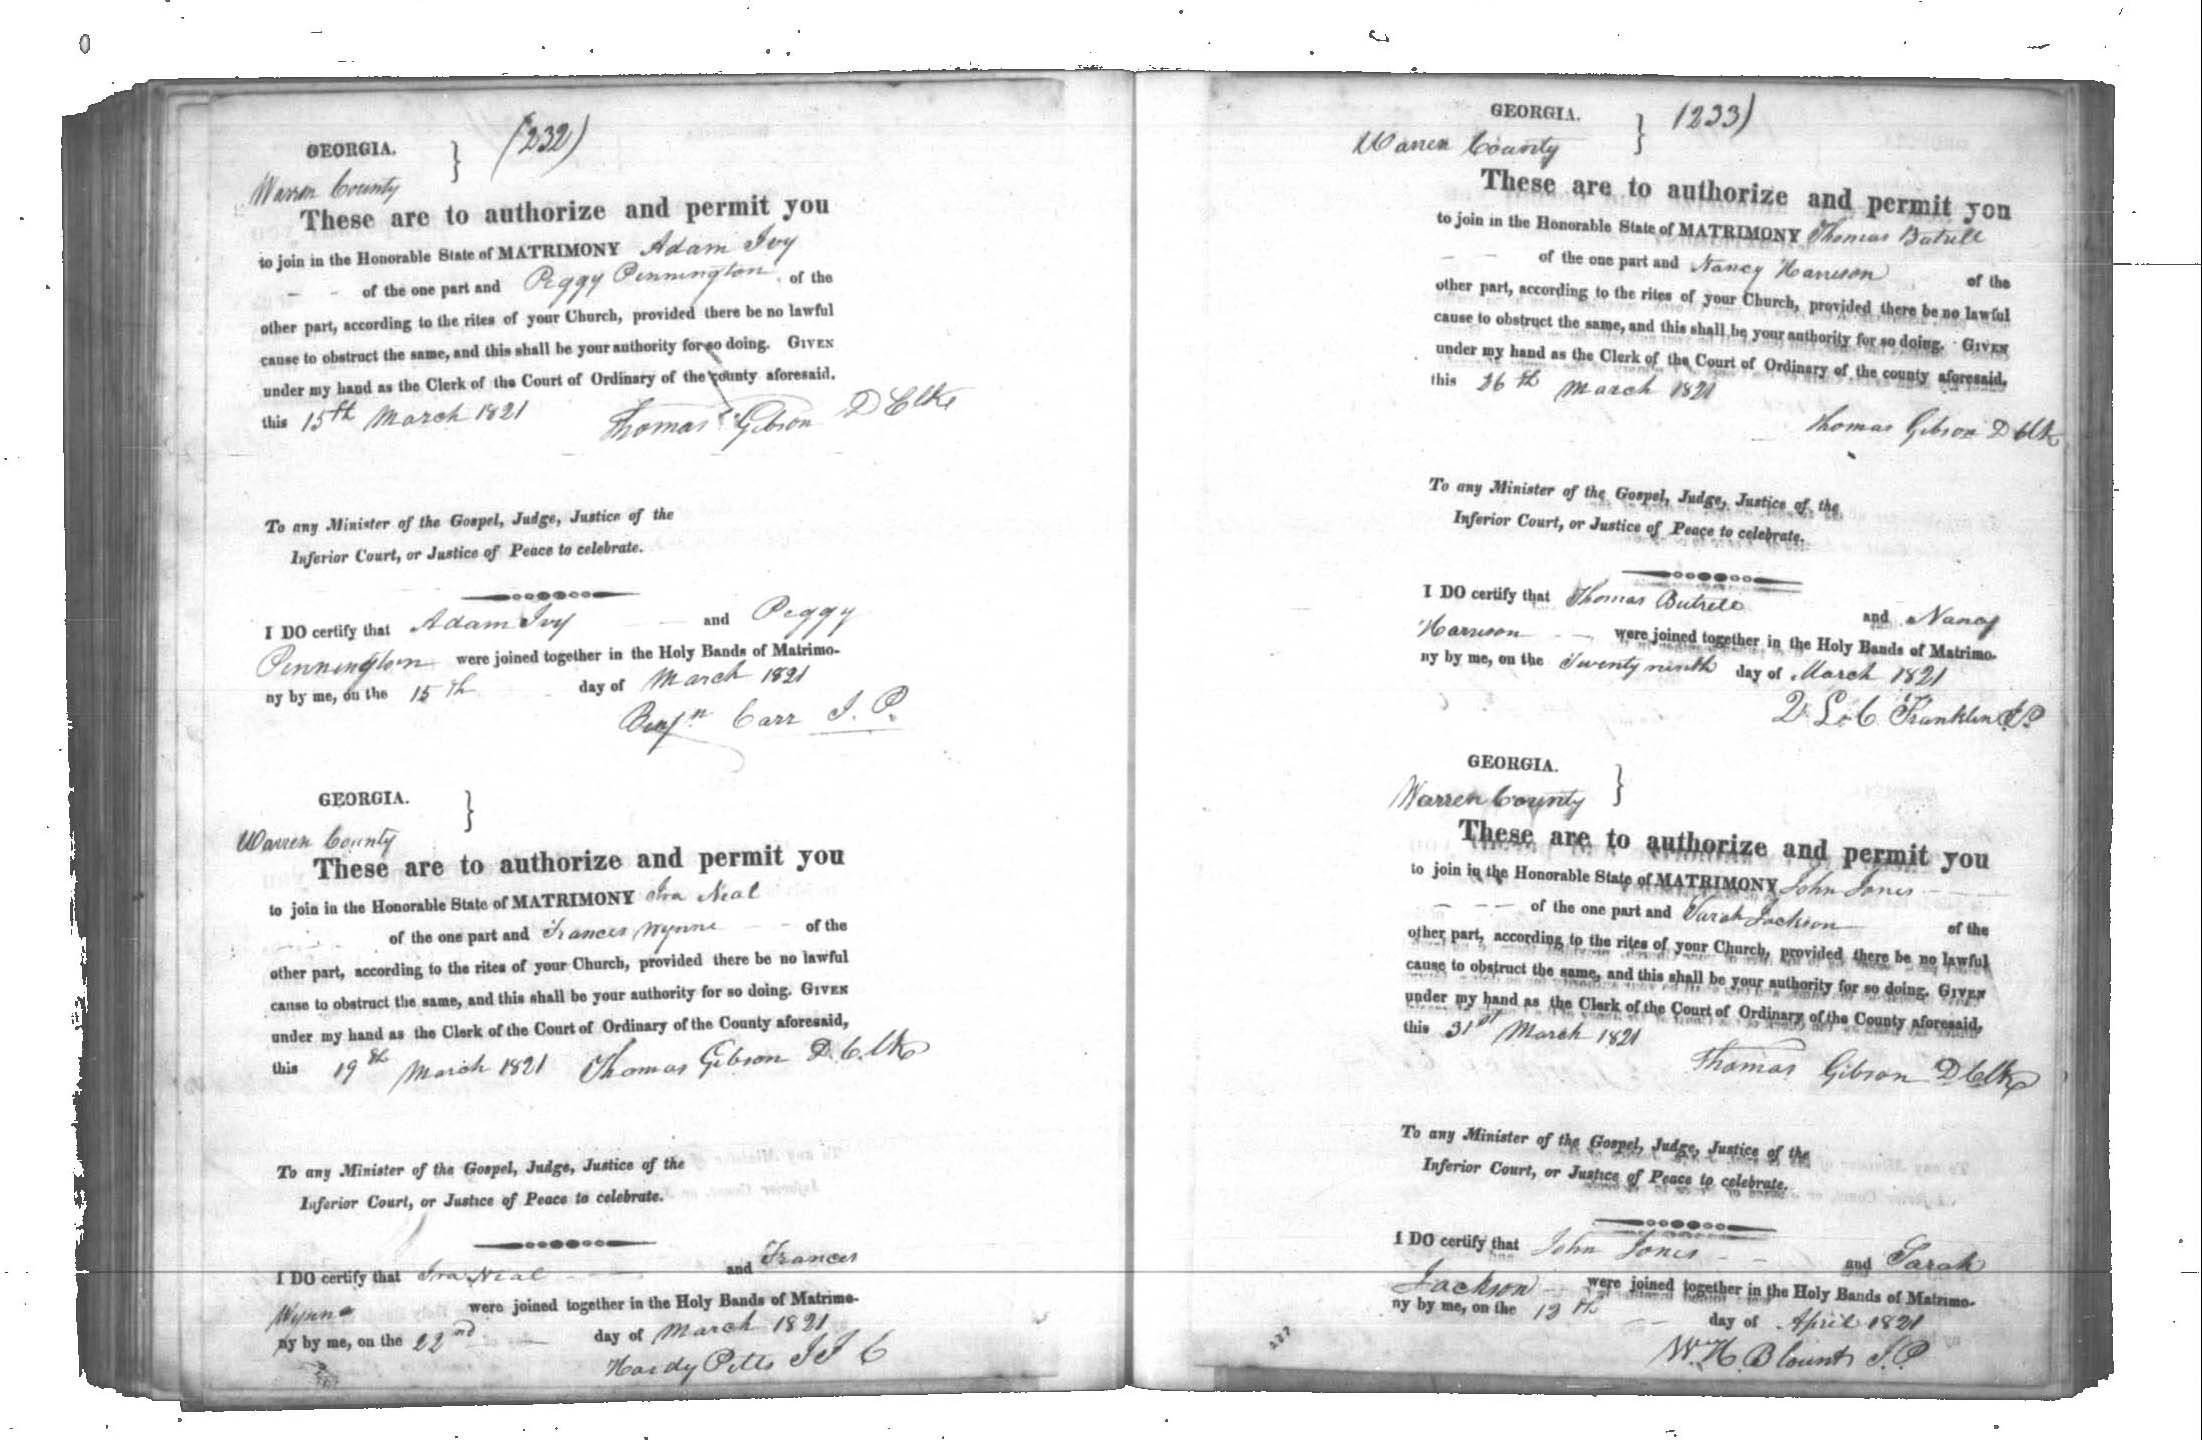 (232)
GEORGIA. }
Warren County
These are to authorize and permit you
to join in the Honorable State of MATRIMONY Adam Ivy
- - of the one part and Peggy Pennington of the
other part, according to the rites of your Church, provided there be no lawful
cause to obstruct the same, and this shall be your authority for so doing. GIVEN
under my hand as the Clerk of the Court of Ordinary of the county aforesaid.
this 15th March 1821 Thomas Gibson D Clk
To any Minister of the Gospel, Judge, Justice of the
Inferior Court, or Justice of Peace to celebrate.
I DO certify that Adam Ivy - and Peggy
Pennington were joined together in the Holy Bands of Matrimo-
ny by me, on the 15th day of March 1821
Benjn Carr J. P.
GEORGIA. }
Warren County
These are to authorize and permit you
to join in the Honorable State of MATRIMONY Ira Neal
of the one part and Frances Wynne - - of the
other part, according to the rites of your Church, provided there be no lawful
cause to obstruct the same, and this shall be your authority for so doing. GIVEN
under my hand as the Clerk of the Court of Ordinary of the County aforesaid,
this 19th March 1821 Thomas Gibson D. Clk
To any Minister of the Gospel, Judge, Justice of the
Inferior Court, or Justice of Peace to celebrate.
I DO certify that Ira Neal - and Frances
Wynne were joined together in the Holy Bands of Matrimo-
ny by me, on the 22nd - day of March 1821
Hardy Pitts J I C
(233)
GEORGIA. }
Warren County
These are to authorize and permit you
to join in the Honorable State of MATRIMONY Thomas Butrell
- - of the one part and Nancy Harrison of the
other part, according to the rites of your Church, provided there be no lawful
cause to obstruct the same, and this shall be your authority for so doing. GIVEN
under my hand as the Clerk of the Court of Ordinary of the county aforesaid.
this 26th March 1821
Thomas Gibson D Clk
To any Minister of the Gospel, Judge, Justice of the
Inferior Court, or Justice of Peace to celebrate.
I DO certify that Thomas Butrell and Nancy
Harrison - were joined together in the Holy Bands of Matrimo-
ny by me, on the Twenty ninth day of March 1821
Franklin J P
GEORGIA. }
Warren County
These are to authorize and permit you
to join in the Honorable State of MATRIMONY John Jones -
- - - of the one part and Sarah Jackson of the
other part, according to the rites of your Church, provided there be no lawful
cause to obstruct the same, and this shall be your authority for so doing. GIVEN
under my hand as the Clerk of the Court of Ordinary of the County aforesaid,
this 31st March 1821
Thomas Gibson D Clk
To any Minister of the Gospel, Judge, Justice of the
Inferior Court, or Justice of Peace to celebrate.
I DO certify that John Jones - - and Sarah
Jackson - were joined together in the Holy Bands of Matrimo-
ny by me, on the 12th - day of April 1821
Wm H. Blount J. P.